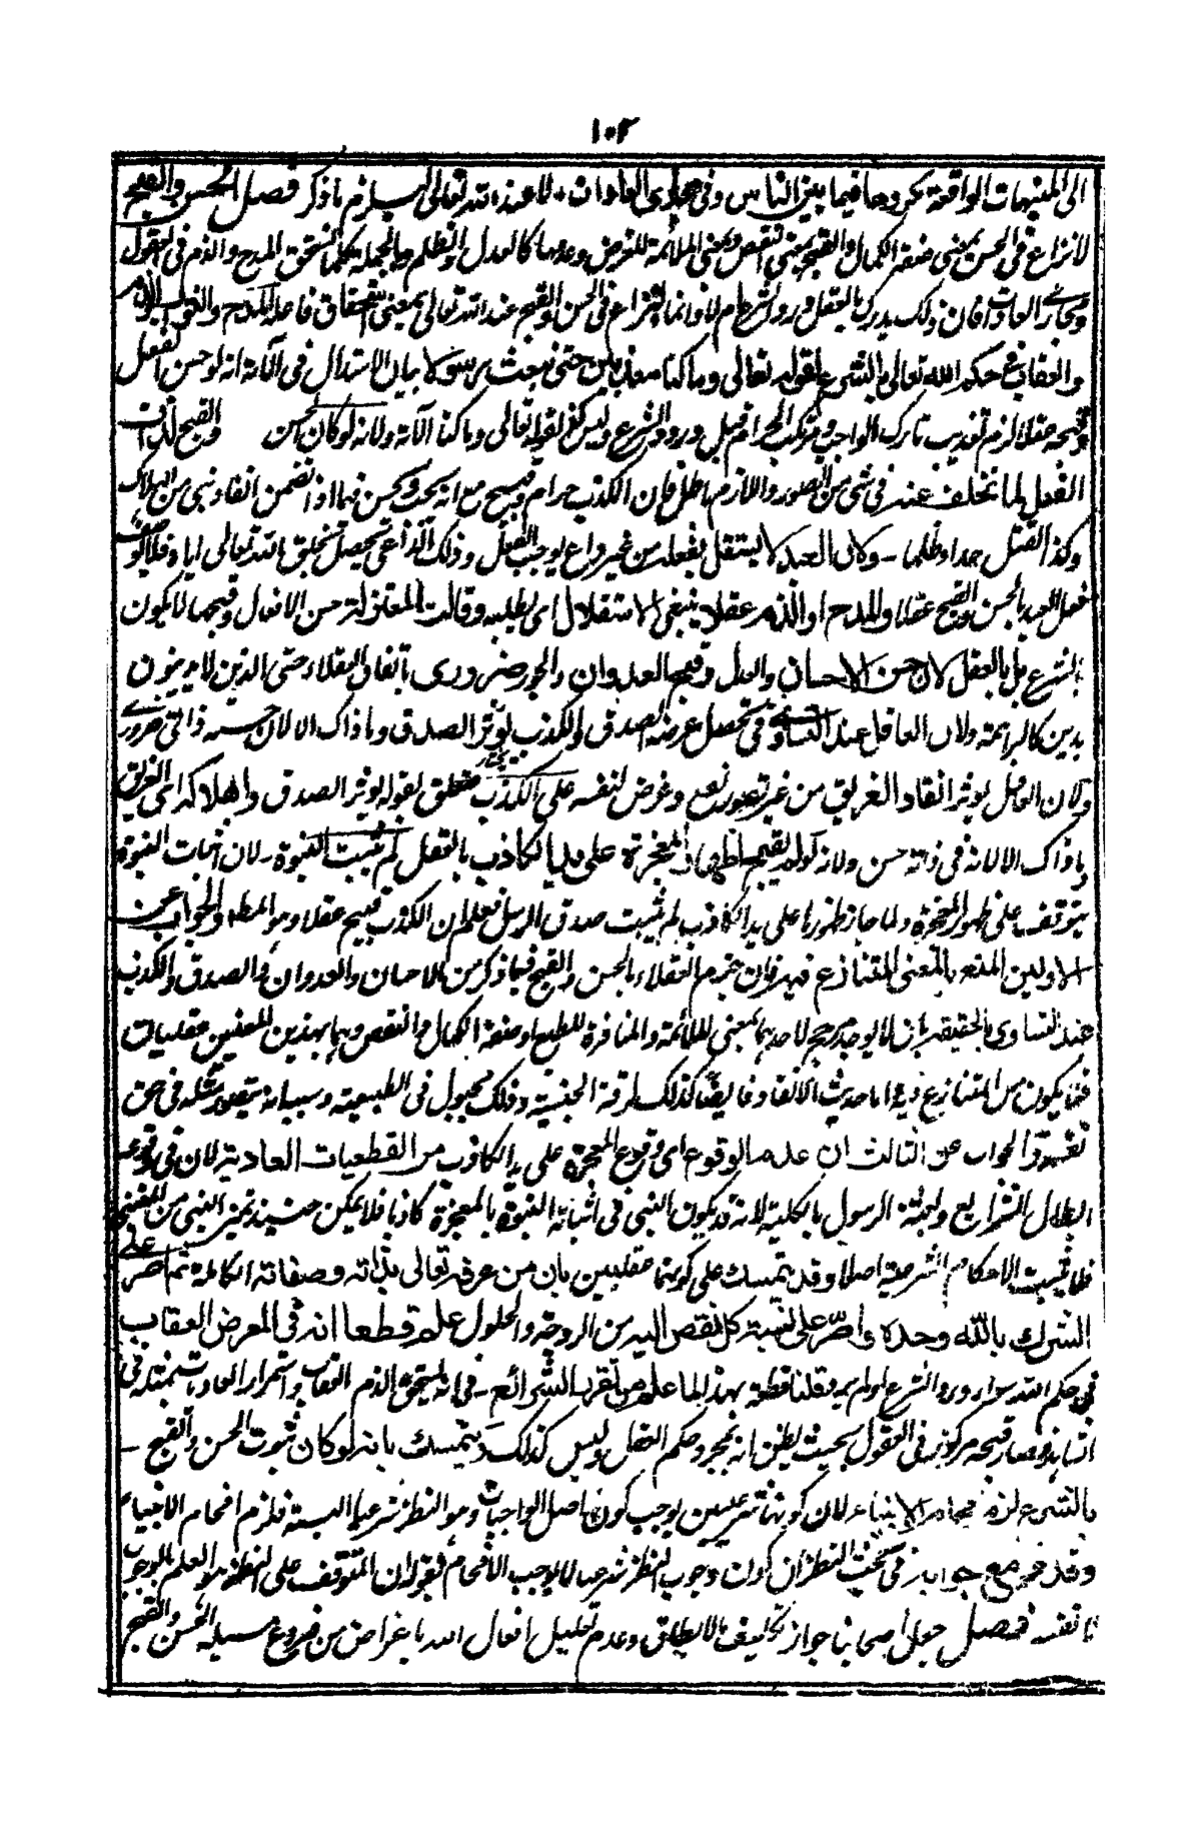 ١٠٢
الى المنهيات الواقعة فيما بين الناس وفى العادات لا عند الله تعالى ما ذكر فصل الحسن والقبح
لا نزاع فى الحسن بمعنى صفة الكمال والقبح بمعنى النقص وبمعنى الملائمة للغرض وعدمها كالعدل والظلم وبالجملة كلما استحق المدح والذم فى العقول
العادات فان ذلك يدرك بالعقل ورد الشرع ام لا وانما النزاع فى الحسن والقبح عند الله تعالى بمعنى استحقاق فاعله المدح والثواب
والعقاب فى حكم الله تعالى بالشرع لقوله تعالى وما كنا معذبين حتى نبعث رسولا بيان الاستدلال فى الآية انه لو حسن الفعل
وقبح عقلا لزم تعذيب تارك الواجب ومرتكب الحرام قبل ورود الشرع وليس كذا لقوله تعالى وما كنا الآية ولانه لو كان الحسن والقبح لذات
الفعل لما تخلف عنه فى شئ من الصور واللازم باطل فان الكذب حرام وقبيح مع انه يحسن فيما اذا تضمن انقاذ نبى من الهلاك
وكذا القتل حدا وظلما ـ ولان العبد لا يستقل بفعله من غير داع يوجب الفعل وذلك الداعى تحصيل تخليق الله تعالى اياه فلا
فعل العبد بالحسن والقبح عقلا والمدح او الذم عقلا ينبغى الاستقلال اى يطلبه وقالت المعتزلة حسن الافعال وقبحها لا يكون
بالشرع بل بالعقل لان حسن الاحسان والعدل وقبح العدوان والجور ضرورى باتفاق العقلاء حتى الذين لا يدينون
بدين كالبراهمة ولان العاقل عند التساوى فى تحصل غرضه الصدق والكذب يؤثر الصدق وما ذاك الا لان حسنه ذاتى ضرورى
ولان العاقل يؤثر انقاذ الغريق من غير تصور نفع وغرض لنفسه على الكذب متعلق بقوله يؤثر الصدق واهلاكه اى الغريق
ما ذاك الا لانه فى ذاته حسن ولانه لو لم يقبح اظهار المعجزة على يد الكاذب بالعقل لم يثبت النبوة ـ لان اثبات النبوة
يتوقف على ظهور المعجزة ولما جاز ظهورها على يد الكاذب لم يثبت صدق الرسل فعلم ان الكذب قبيح عقلا وهو المطلوب والجواب عن
الاولين المنع بالمعنى المتنازع فيه فان جزم العقلاء بالحسن والقبح فيما ذكر من الاحسان والعدوان والصدق والكذب
عند التساوى بالحقيقة بان لا يوجد مرجح لاحدهما بمعنى الملائمة والمنافرة للطبع او صفة الكمال والنقص وهما بهذين المعنيين عقليان
فلا يكون من المتنازع فيه واما حديث الانقاذ فايضا كذلك لرقة الجنسية وذلك مجبول فى الطبيعة وسببه انه يتصور مثله فى حق
نفسه والجواب عن الثالث ان عدم الوقوع اى وقوع المعجزة على يد الكاذب من القطعيات العادية لان فى وقوعه
ابطال الشرايع وبعثة الرسول بالكلية لانه قد يكون النبى فى اثباته النبوة بالمعجزة كاذبا فلا يمكن حينئذ تميز النبى من المتنبى
فلا يثبت الاحكام الشرعية اصلا وقد يتمسك على كونهما عقليين بان من عرف تعالى بذاته وصفاته الكاملة ثم اصر على
الشرك بالله وحده واصر على نسبة كل نقص اليه من الزوجة والحلول علم قطعا انه فى المعرض العقاب
فى حكم الله سواء ورد الشرع او لم يرد قلنا قطعه بهذا لما علم من الشرائع ـ فى انه يستحق الذم العقاب واستمرار العادات
قبحه مركوز فى العقول بحيث يظن انه بمجرد حكم العقل وليس كذلك ويتمسك بانه لو كان ثبوت الحسن والقبح ـ
بالشرع لزم افحام الانبياء لان كونهما شرعيين يوجب كون اصل الواجبات وهو النظر شرعيا البتة فلزم افحام الانبياء
وقد مر مع جوابه فى بحث النظر ان كون وجوب النظر شرعيا لا يوجب الافحام فقوله ان المتوقف على النظر هو العلم بالوجوب
لا نفسه فصل جعل اصحابنا جواز تكليف ما لا يطاق وعدم تعليل افعال الله باغراض من فروع مسئلة الحسن والقبح